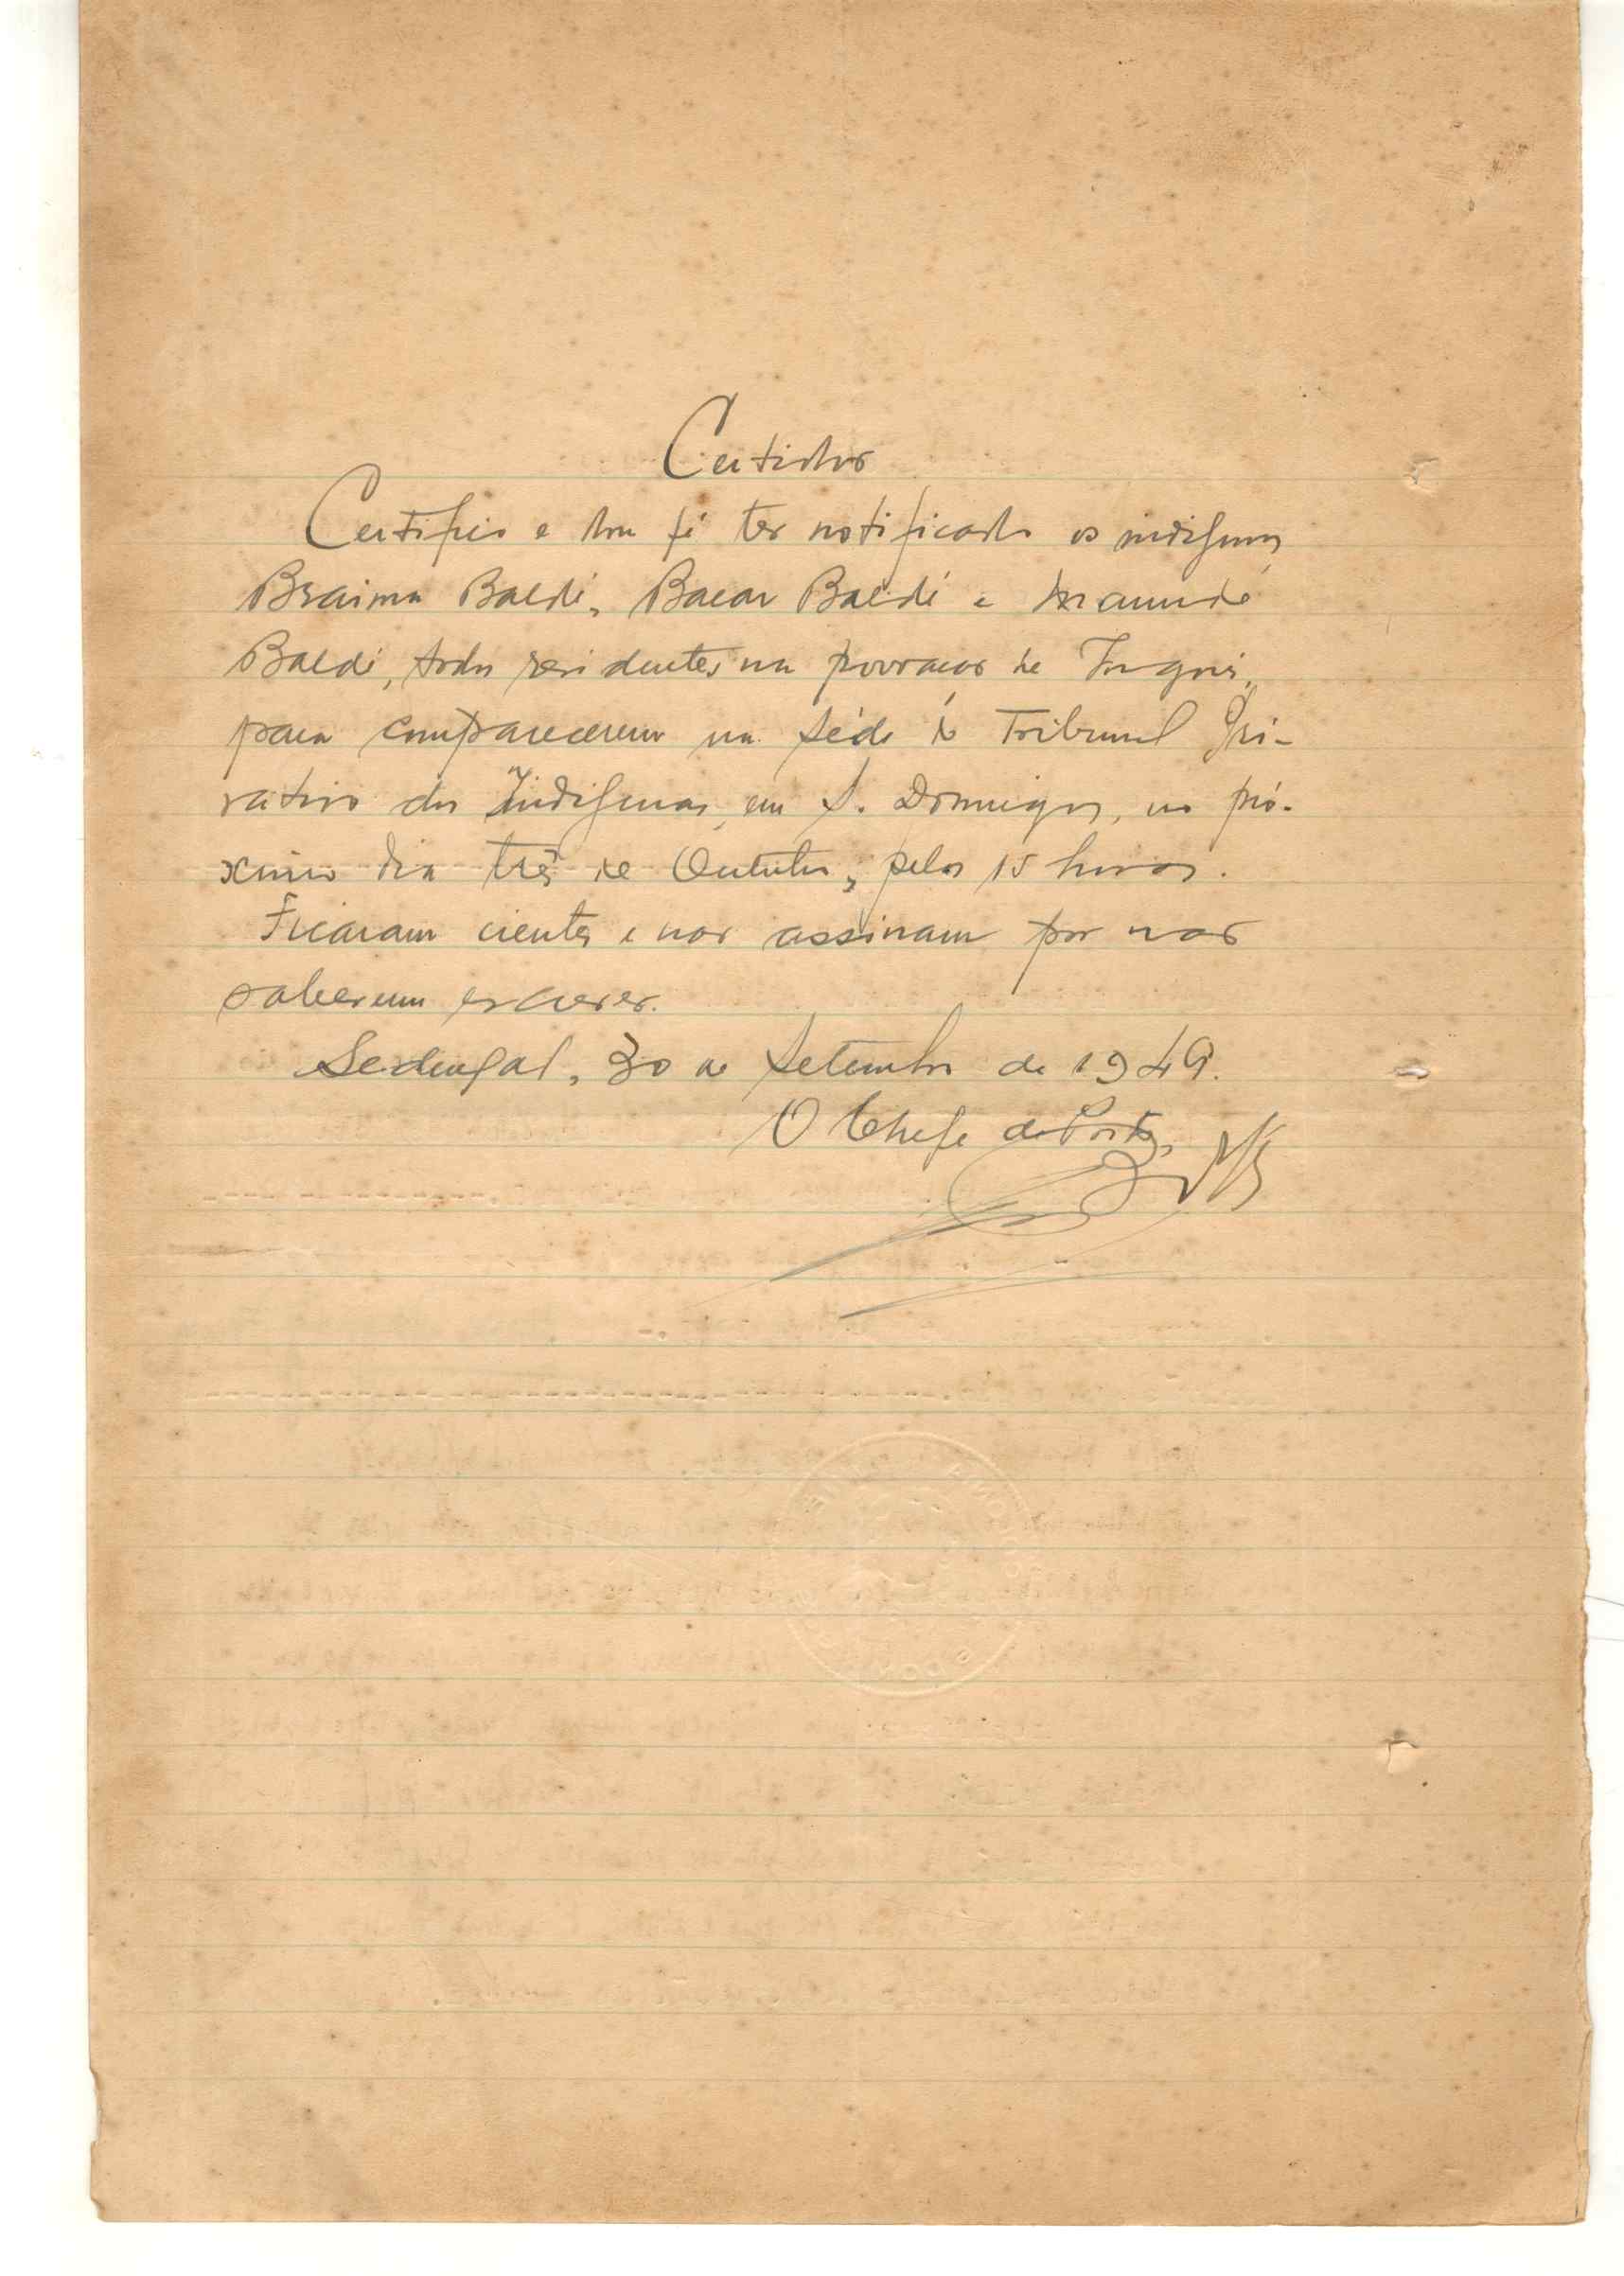 Certidão
Certifico e dou fé ter notificado os indigenas
Braima Baldé, Bacar Baldé e Mamudé
Baldé, todos residentes na povoação de Ingoré,
para comparecerem na séde do Tribunal Pri-
vativo dos Indigenas, em S. Domingos, no pró-
ximo dia três de Outubro, pelas 15 horas.
Ficaram cientes e não assinam por não
saberem escrever.
Sedengal, 30 de Setembro de 1949.
O Chefe de Posto,